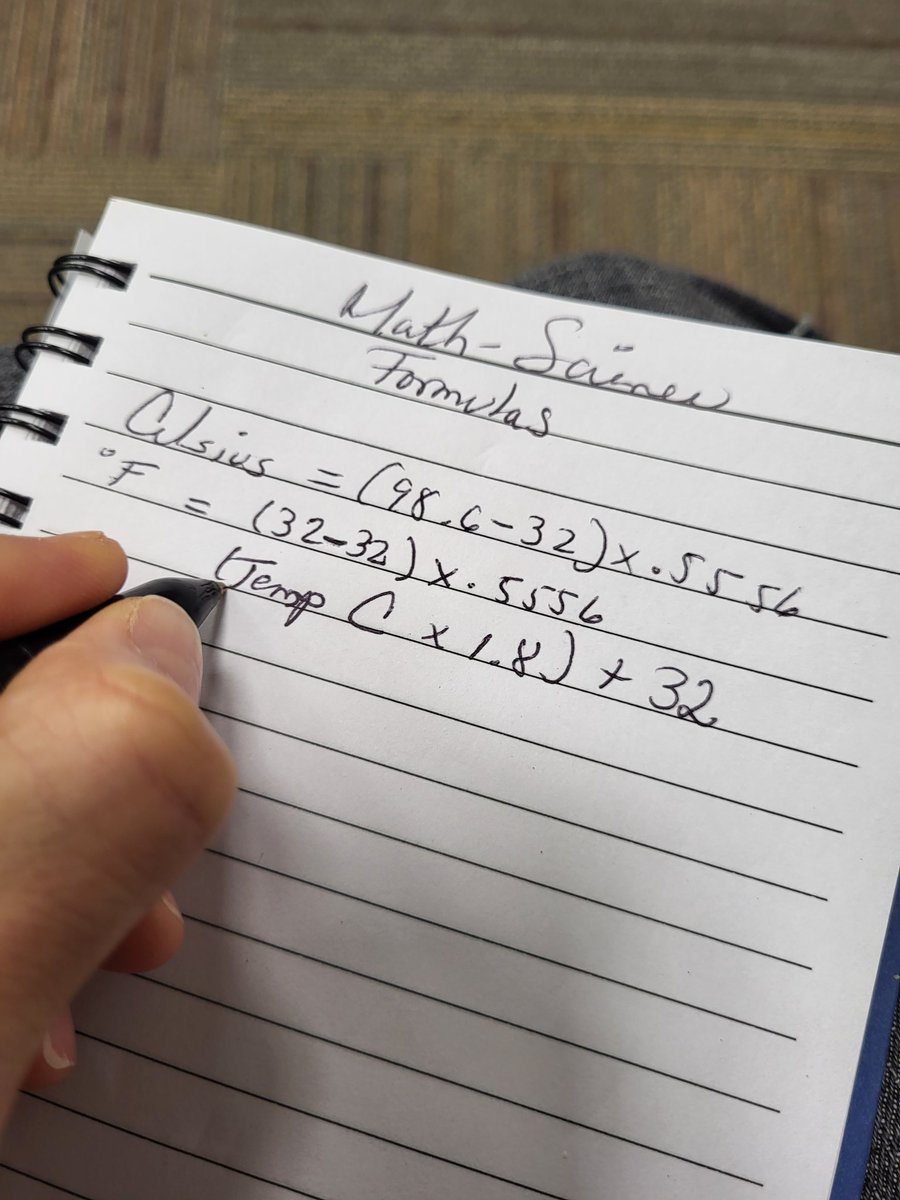 Math - Science
Formulas
Celsius = (98.6-32) x .5556
°F = (32-32) x .5556
(Temp C x 1.8) + 32